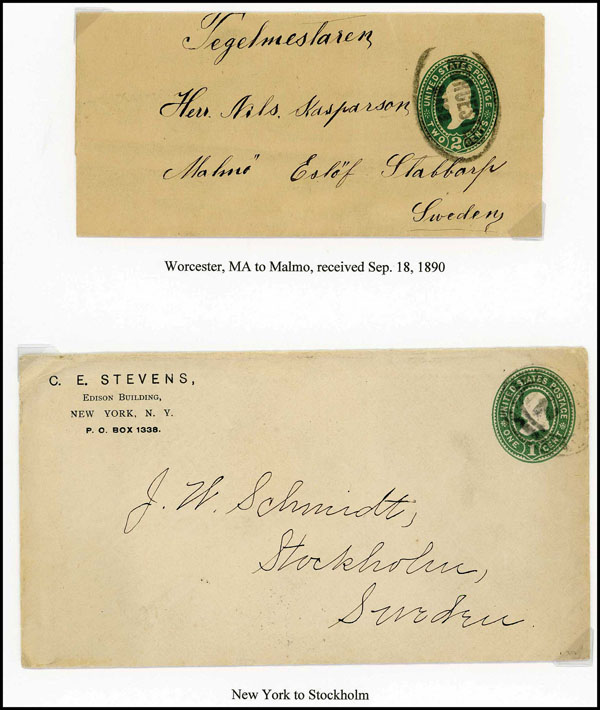 Tegelmestaren
Herr. Nils. Kasparson
Malmö Eslöf Stabbarp
Sweden
UNITED STATES POSTAGE
TWO 2 CENTS
Worcester, MA to Malmo, received Sep. 18, 1890
C. E. STEVENS,
EDISON BUILDING,
NEW YORK, N. Y.
P. O. BOX 1338.
UNITED STATES POSTAGE
ONE 1 CENT
J. W. Schmidt,
Stockholm,
Sweden.
New York to Stockholm